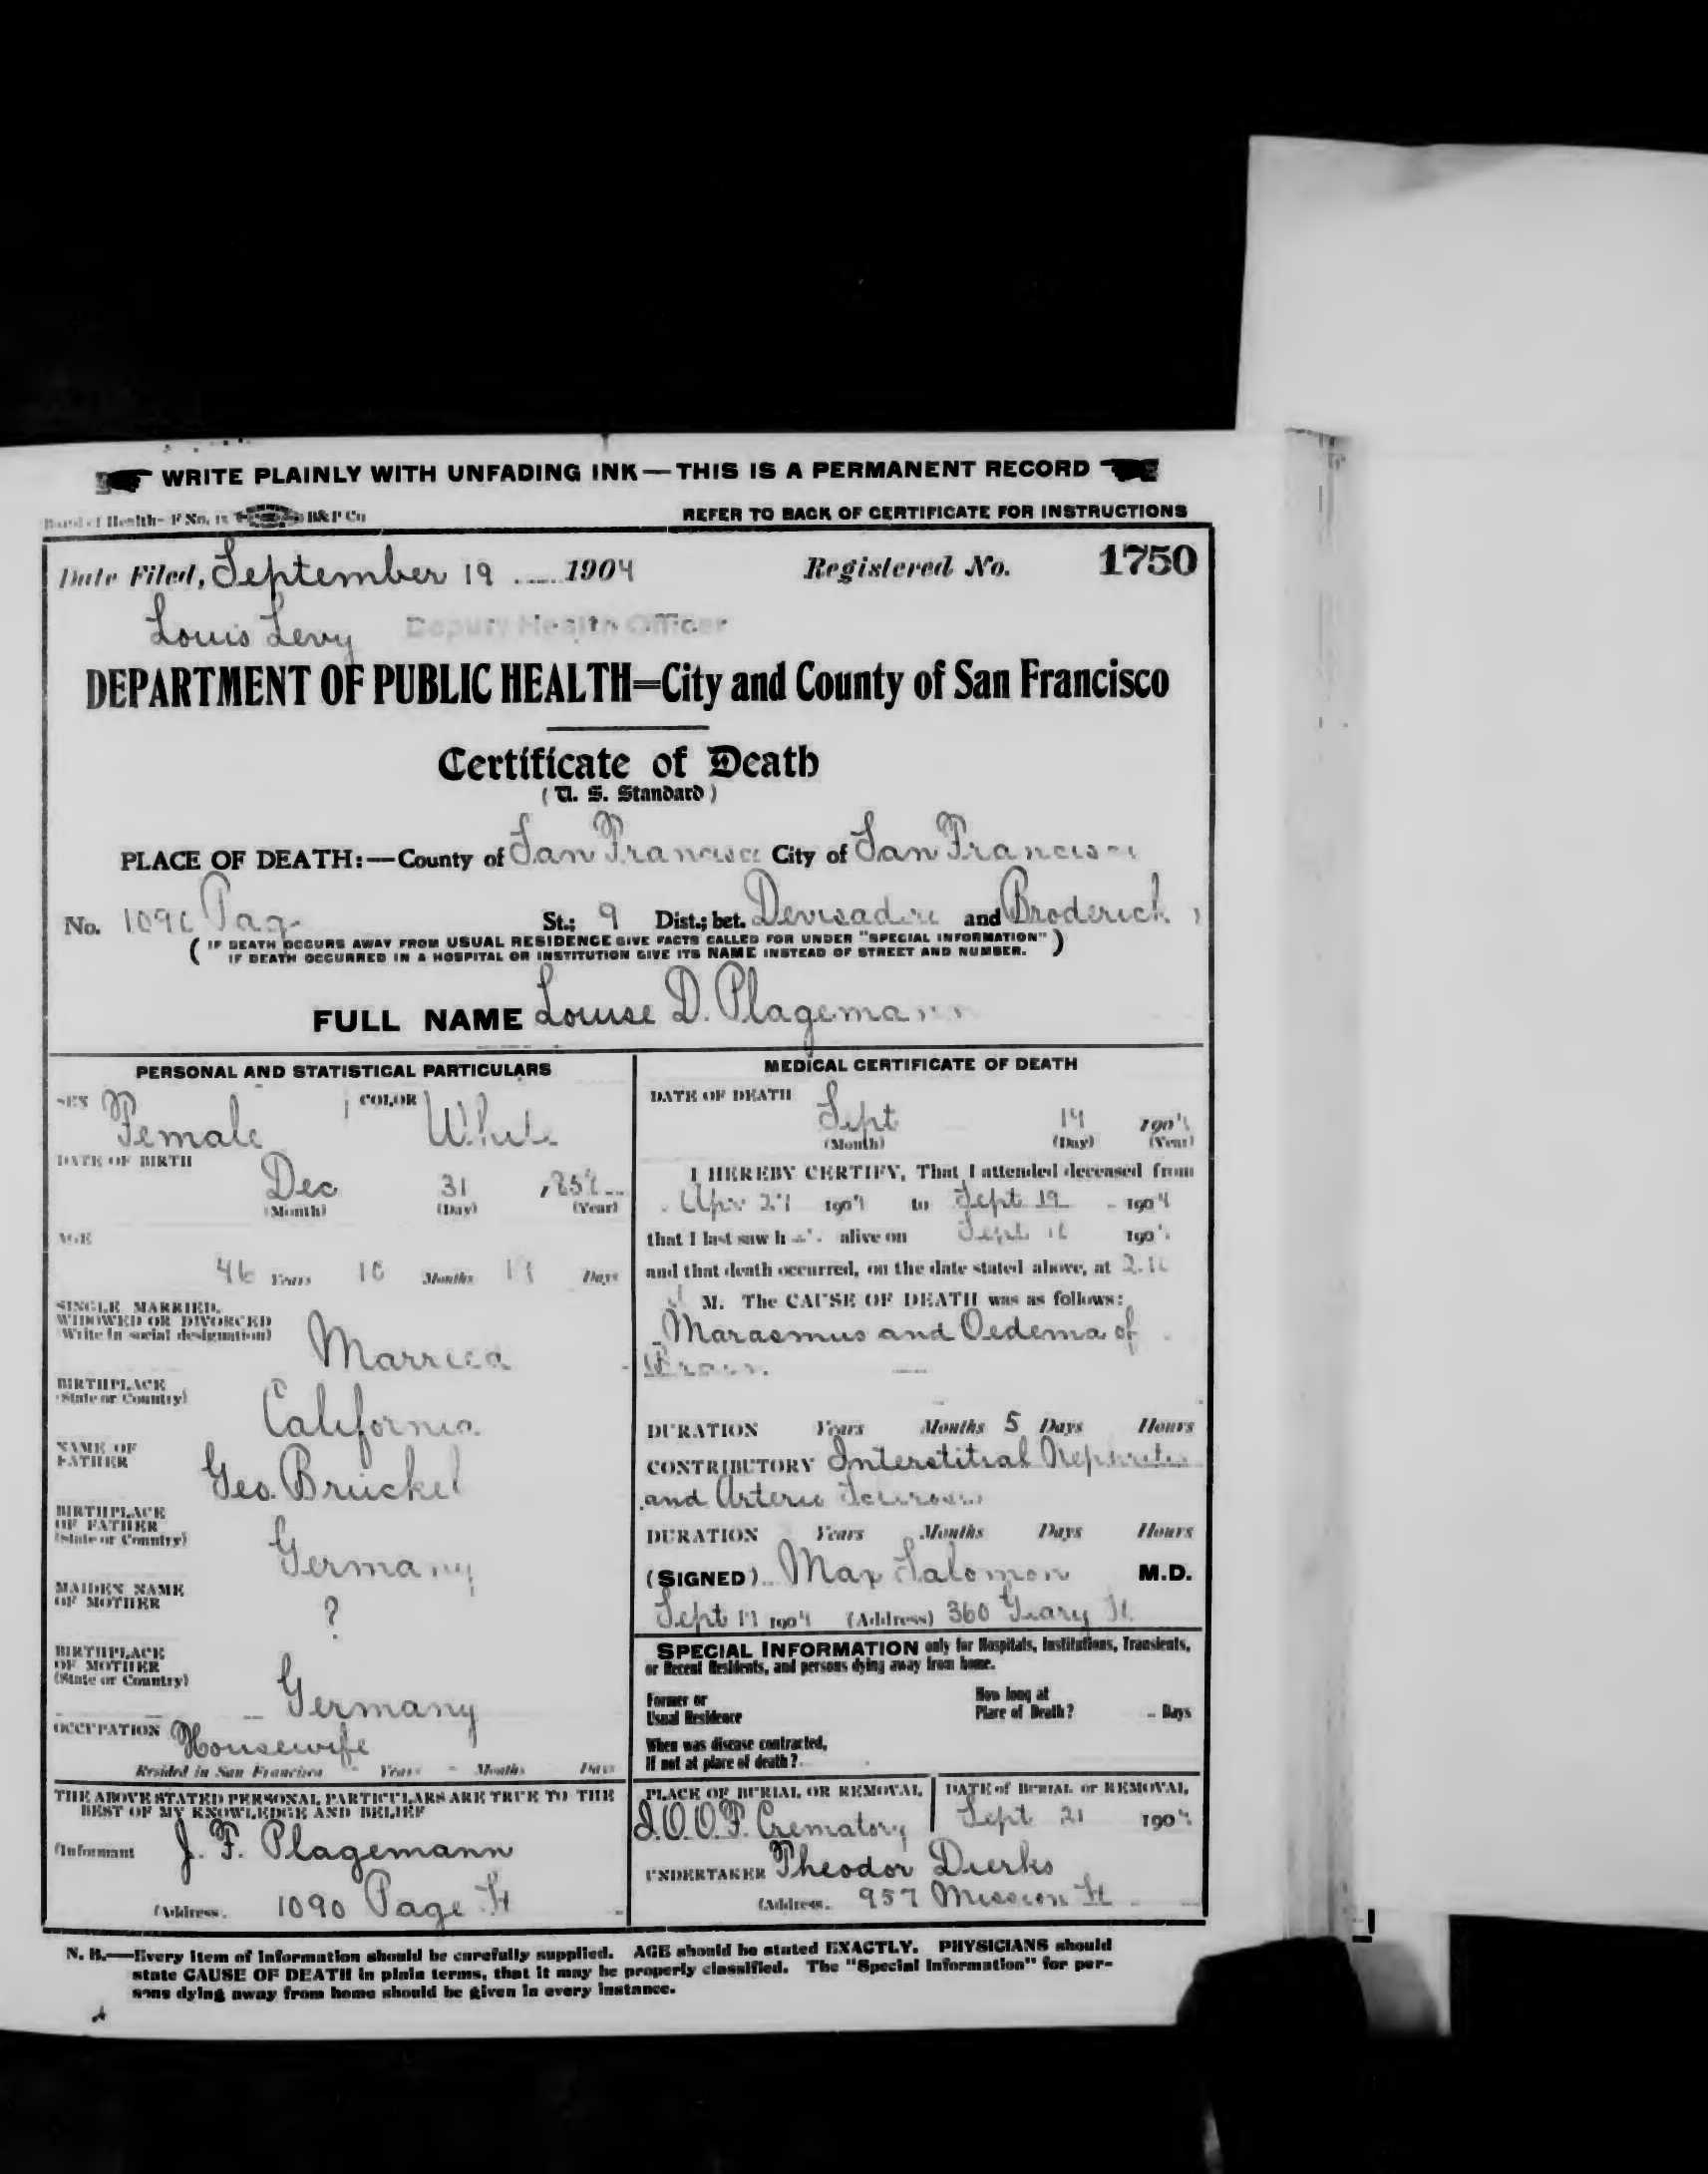 WRITE PLAINLY WITH UNFADING INK — THIS IS A PERMANENT RECORD
Board of Health—F No. 15 B&P Co
REFER TO BACK OF CERTIFICATE FOR INSTRUCTIONS
Date Filed, September 19 1904 Registered No. 1750
Louis Levy Deputy Health Officer
DEPARTMENT OF PUBLIC HEALTH=City and County of San Francisco
Certificate of Death
(U. S. Standard)
PLACE OF DEATH:—County of San Francisco City of San Francisco
No. 1090 Page St.; 9 Dist.; bet. Devisadero and Broderick
( IF DEATH OCCURS AWAY FROM USUAL RESIDENCE GIVE FACTS CALLED FOR UNDER "SPECIAL INFORMATION"
IF DEATH OCCURRED IN A HOSPITAL OR INSTITUTION GIVE ITS NAME INSTEAD OF STREET AND NUMBER. )
FULL NAME Louise D. Plagemann
PERSONAL AND STATISTICAL PARTICULARS
SEX Female COLOR White
DATE OF BIRTH
Dec 31
(Month) (Day) (Year)
AGE
46 Years 10 Months Days
SINGLE, MARRIED,
WIDOWED OR DIVORCED
(Write in social designation)
Married
BIRTHPLACE
(State or Country)
California
NAME OF
FATHER
Geo. Bruckel
BIRTHPLACE
OF FATHER
(State or Country)
Germany
MAIDEN NAME
OF MOTHER
?
BIRTHPLACE
OF MOTHER
(State or Country)
Germany
OCCUPATION Housewife
Resided in San Francisco Years Months Days
THE ABOVE STATED PERSONAL PARTICULARS ARE TRUE TO THE
BEST OF MY KNOWLEDGE AND BELIEF
(Informant J. F. Plagemann
(Address. 1090 Page St
MEDICAL CERTIFICATE OF DEATH
DATE OF DEATH
Sept 19 1904
(Month) (Day) (Year)
I HEREBY CERTIFY, That I attended deceased from
Apr 27 1904 to Sept 19 1904
that I last saw her alive on Sept 1904
and that death occurred, on the date stated above, at
M. The CAUSE OF DEATH was as follows:
Marasmus and Oedema of
Brain.
DURATION Years Months 5 Days Hours
CONTRIBUTORY Interstitial Nephritis
and Arterio Sclerosis
DURATION Years Months Days Hours
(SIGNED) Max Salomon M.D.
Sept 19 1904 (Address) 360 Geary St.
SPECIAL INFORMATION only for Hospitals, Institutions, Transients,
or Recent Residents, and persons dying away from home.
Former or
Usual Residence
How long at
Place of Death? Days
When was disease contracted,
If not at place of death?
PLACE OF BURIAL OR REMOVAL
I.O.O.F. Crematory
DATE of BURIAL or REMOVAL
Sept 21 1904
UNDERTAKER Theodor Dierks
(Address. 957 Mission St
N. B.—Every item of information should be carefully supplied. AGE should be stated EXACTLY. PHYSICIANS should
state CAUSE OF DEATH in plain terms, that it may be properly classified. The "Special Information" for per-
sons dying away from home should be given in every instance.